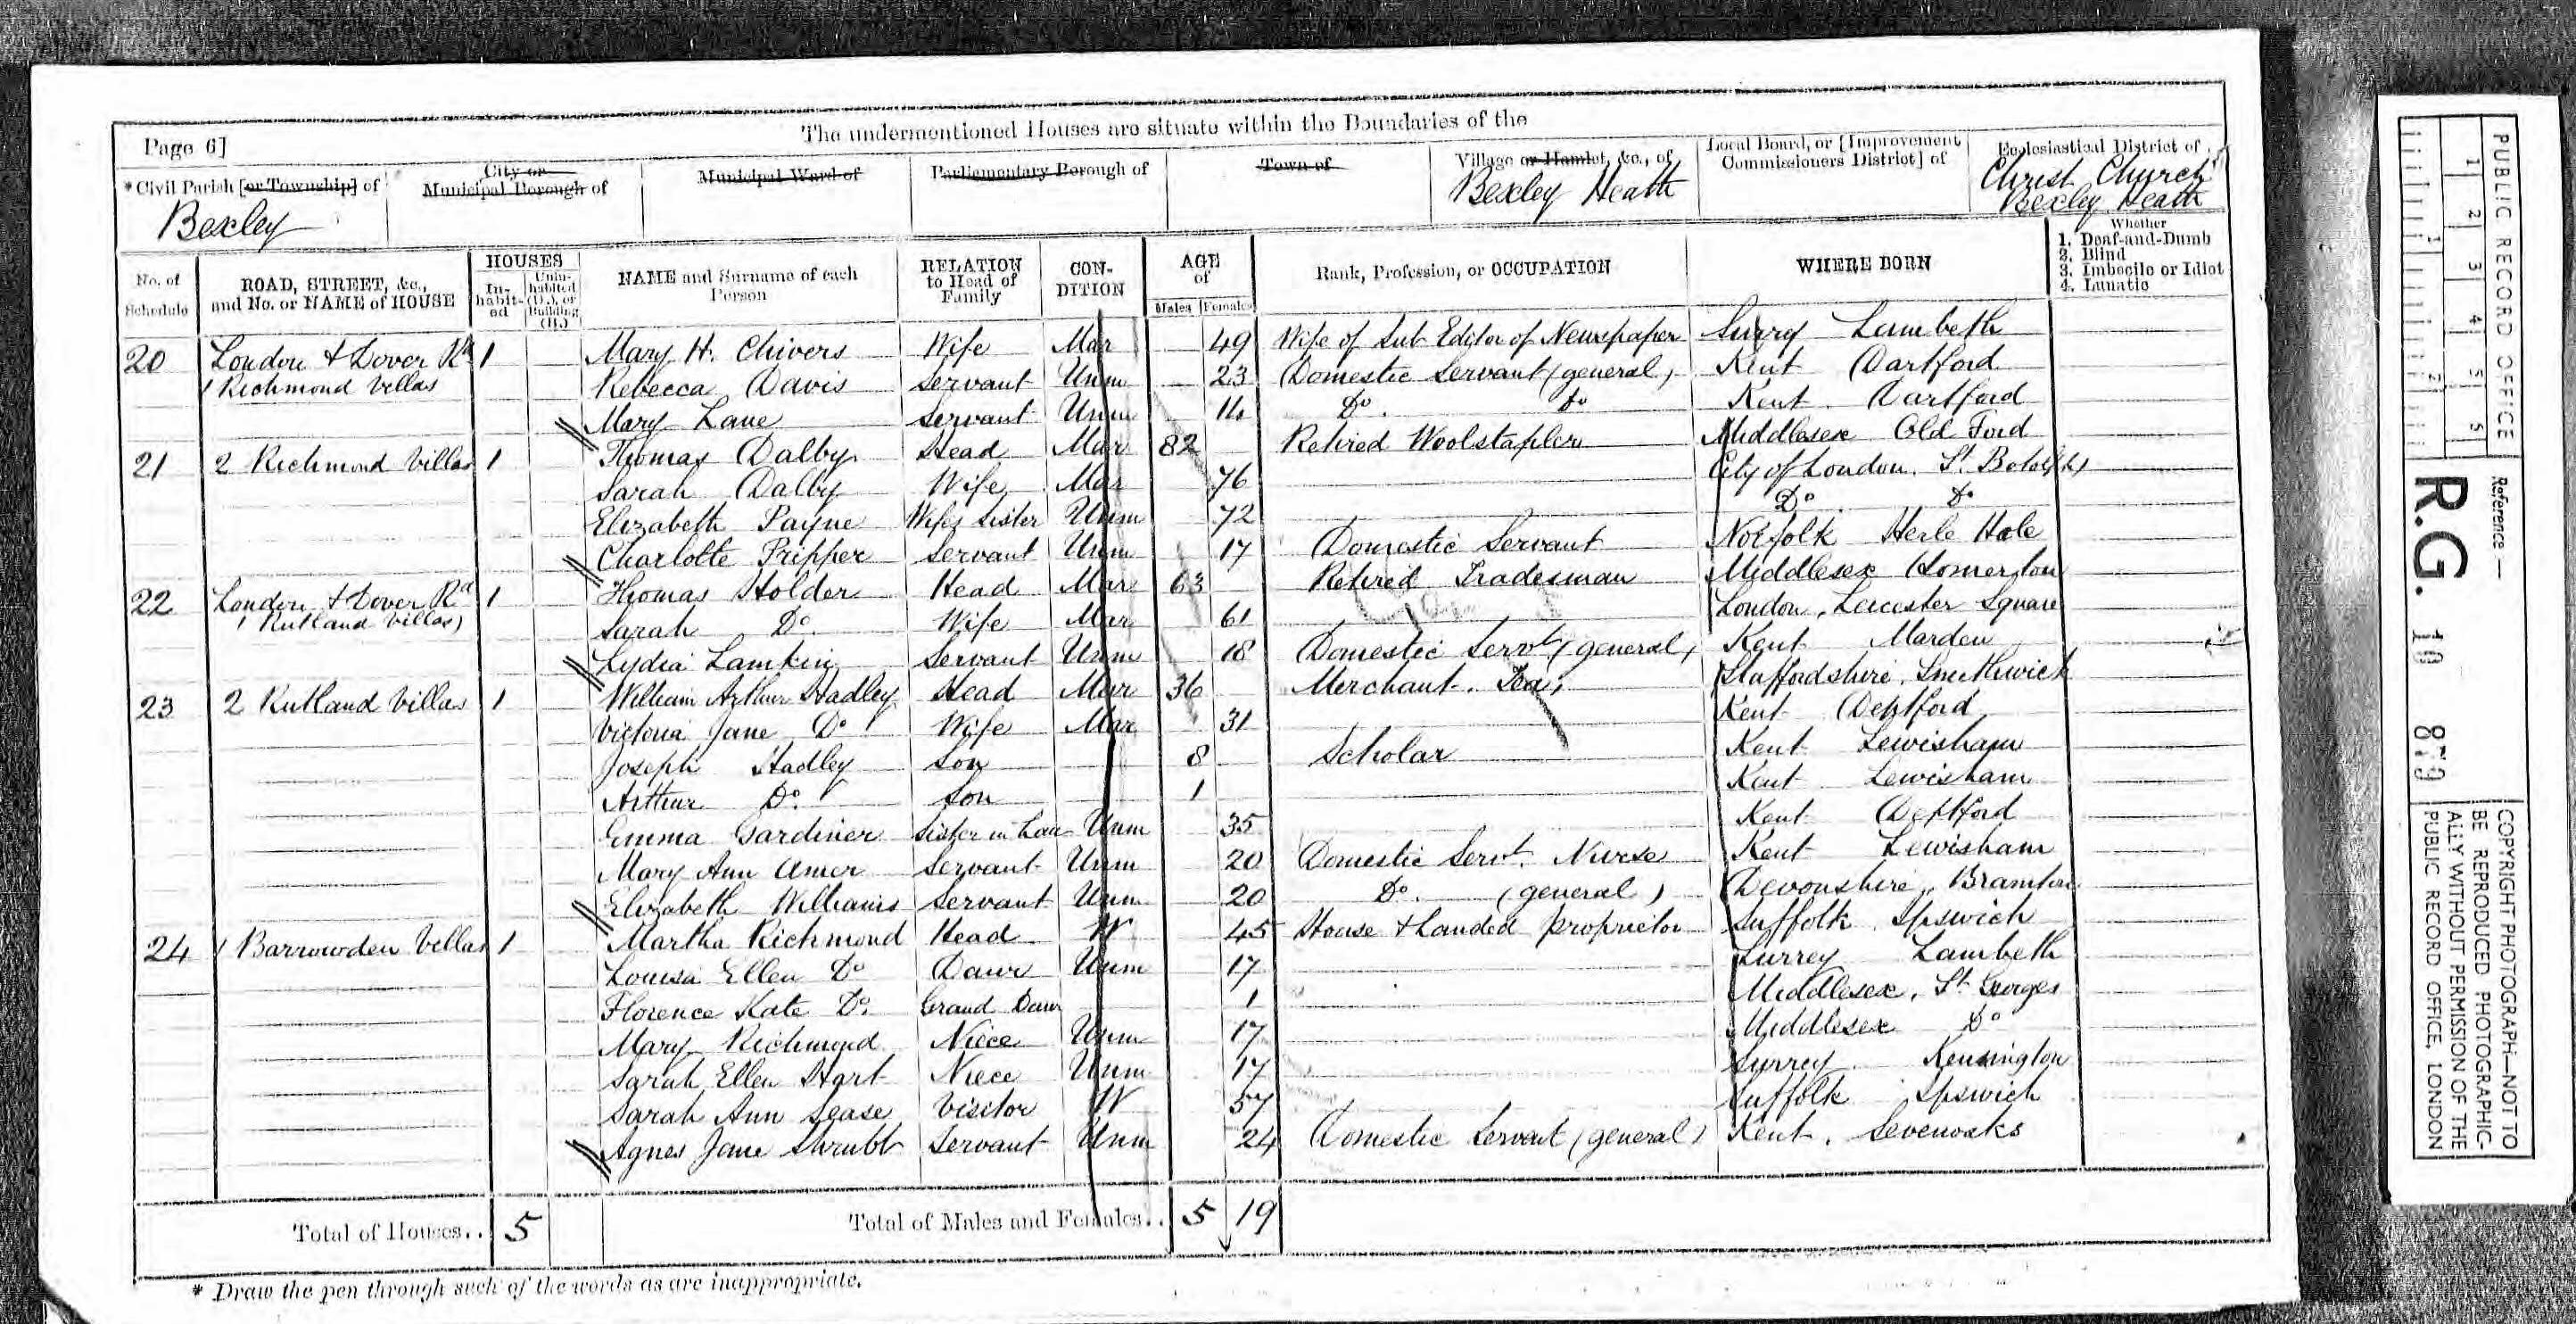 The undermentioned Houses are situate within the Boundaries of the
Page 6]
*Civil Parish [or Township] of Bexley
City or Municipal Borough of
Municipal Ward of
Parliamentary Borough of
Town of
Village or Hamlet, &c., of Bexley Heath
Local Board, or [Improvement Commissioners District] of
Ecclesiastical District of Christ Church Bexley Heath
No. of Schedule
ROAD, STREET, &c., and No. or NAME of HOUSE
HOUSES
In-habit-ed
Unin-habited (U.), or Building (B.)
NAME and Surname of each Person
RELATION to Head of Family
CON-DITION
AGE of
Males Females
Rank, Profession, or OCCUPATION
WHERE BORN
Whether
1. Deaf-and-Dumb
2. Blind
3. Imbecile or Idiot
4. Lunatic
20 London & Dover Rd 1 Mary H. Chivers Wife Mar 49 Wife of Sub Editor of Newspaper Surry Lambeth
1 Richmond Villas Rebecca Davis Servant Unm 23 Domestic Servant (general) Kent Dartford
Mary Lane Servant Unm 14 Do. do Kent Dartford
21 2 Richmond Villas 1 Thomas Dalby Head Mar 82 Retired Woolstapler Middlesex Old Ford
Sarah Dalby Wife Mar 76 City of London. St. Botolph
Elizabeth Payne Wifes Sister Unm 72 Do Do
Charlotte Pripper Servant Unm 17 Domestic Servant Norfolk
22 London & Dover Rd 1 Thomas Holder Head Mar 63 Retired Tradesman Middlesex Homerton
1 Rutland Villas Sarah Do. Wife Mar 61 London, Leicester Square
Lydia Lamkin Servant Unm 18 Domestic Servt (general) Kent Marden
23 2 Rutland Villas 1 William Arthur Hadley Head Mar 36 Merchant. Tea Staffordshire, Smethwick
Victoria Jane Do Wife Mar 31 Kent Deptford
Joseph Hadley Son 8 Scholar Kent Lewisham
Arthur Do. Son 1 Kent Lewisham
Emma Gardiner Sister in Law Unm 35 Kent Deptford
Mary Ann Amer Servant Unm 20 Domestic Servt. Nurse Kent Lewisham
Elizabeth Williams Servant Unm 20 Do. (general) Devonshire, Brampton
24 1 Barrowden Villas 1 Martha Richmond Head W 45 House & Landed proprietor Suffolk Ipswich
Louisa Ellen Do Daur Unm 17 Surrey Lambeth
Florence Kate Do. Grand Daur 1 Middlesex, St. Georges
Mary Richmond Niece Unm 17 Middlesex Do
Sarah Ellen Hart Niece Unm 17 Surrey Kensington
Sarah Ann Sease Visitor W 57 Suffolk Ipswich
Agnes Jane Shrubb Servant Unm 24 Domestic Servant (general) Kent. Sevenoaks
Total of Houses.. 5 Total of Males and Females.. 5 19
* Draw the pen through such of the words as are inappropriate.
PUBLIC RECORD OFFICE
1 2 3 4 5
Reference —
R.G. 10 879
COPYRIGHT PHOTOGRAPH—NOT TO BE REPRODUCED PHOTOGRAPHIC-ALLY WITHOUT PERMISSION OF THE PUBLIC RECORD OFFICE, LONDON